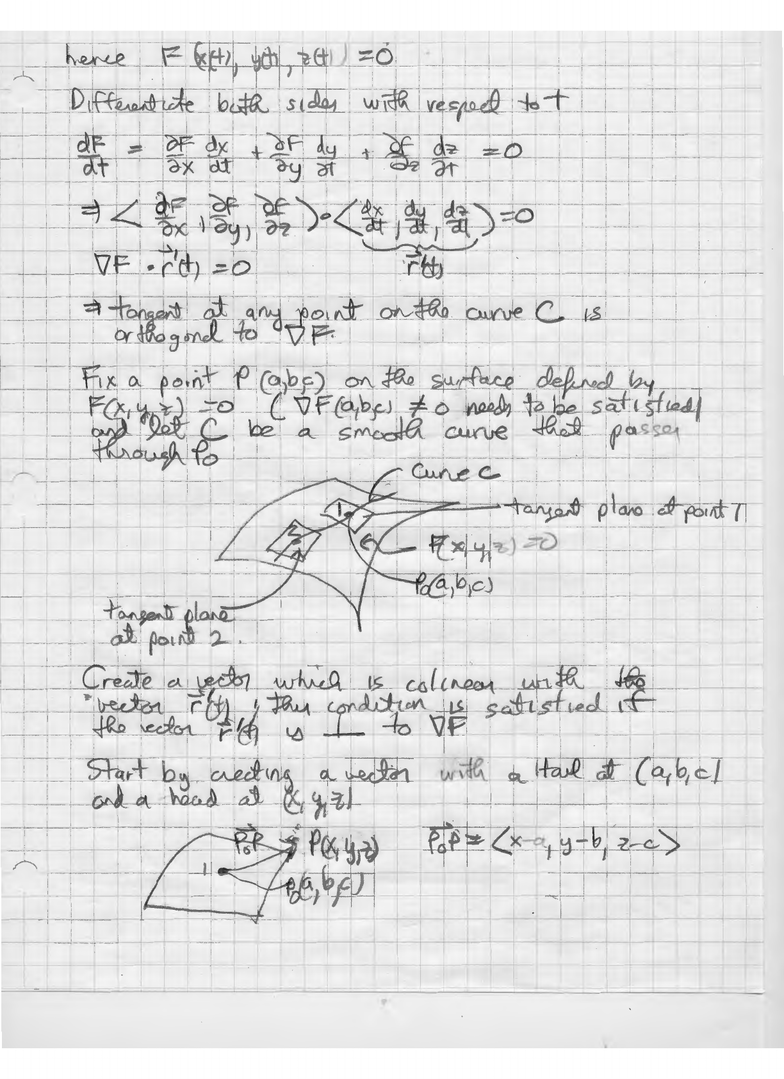 hence F (x(t), y(t), z(t)) = 0
Differentiate both sides with respect to t
dF/dt = ∂F/∂x dx/dt + ∂F/∂y dy/dt + ∂F/∂z dz/dt = 0
⇒ < ∂F/∂x, ∂F/∂y, ∂F/∂z > • < dx/dt, dy/dt, dz/dt > = 0
∇F • r⃗'(t) = 0 r⃗'(t)
⇒ tangent at any point on the curve C is
orthogonal to ∇F.
Fix a point P (a,b,c) on the surface defined by
F(x,y,z) = 0 ( ∇F(a,b,c) ≠ 0 needs to be satisfied)
and let C be a smooth curve that passes
through P₀
curve C
1 tangent plane at point 1
2 F(x,y,z) = 0
P₀(a,b,c)
tangent plane
at point 2.
Create a vector which is colinear with the
vector r⃗'(t), this condition is satisfied if
the vector r⃗'(t) is ⊥ to ∇F
Start by creating a vector with a tail at (a,b,c)
and a head at (x,y,z)
P₀P⃗ P(x,y,z) P₀P⃗ = <x-a, y-b, z-c>
1 P₀(a,b,c)